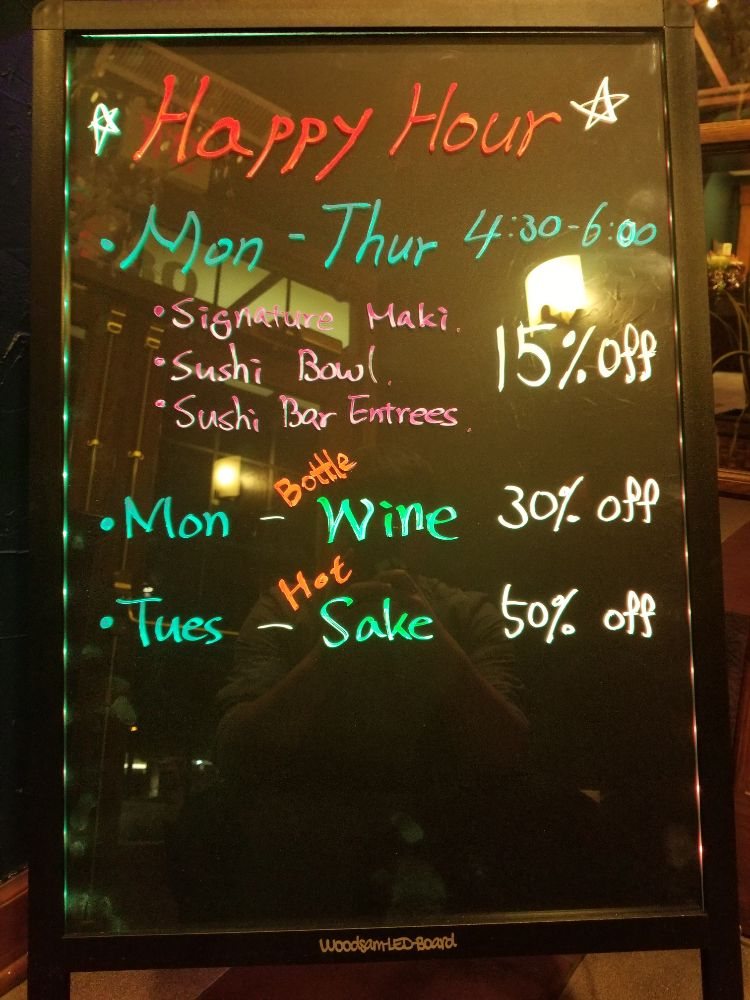 Happy Hour
• Mon - Thur 4:30-6:00
• Signature Maki.
• Sushi Bowl. 15% off
• Sushi Bar Entrees.
Bottle
• Mon - Wine 30% off
Hot
• Tues - Sake 50% off
Woodsam-LED-Board